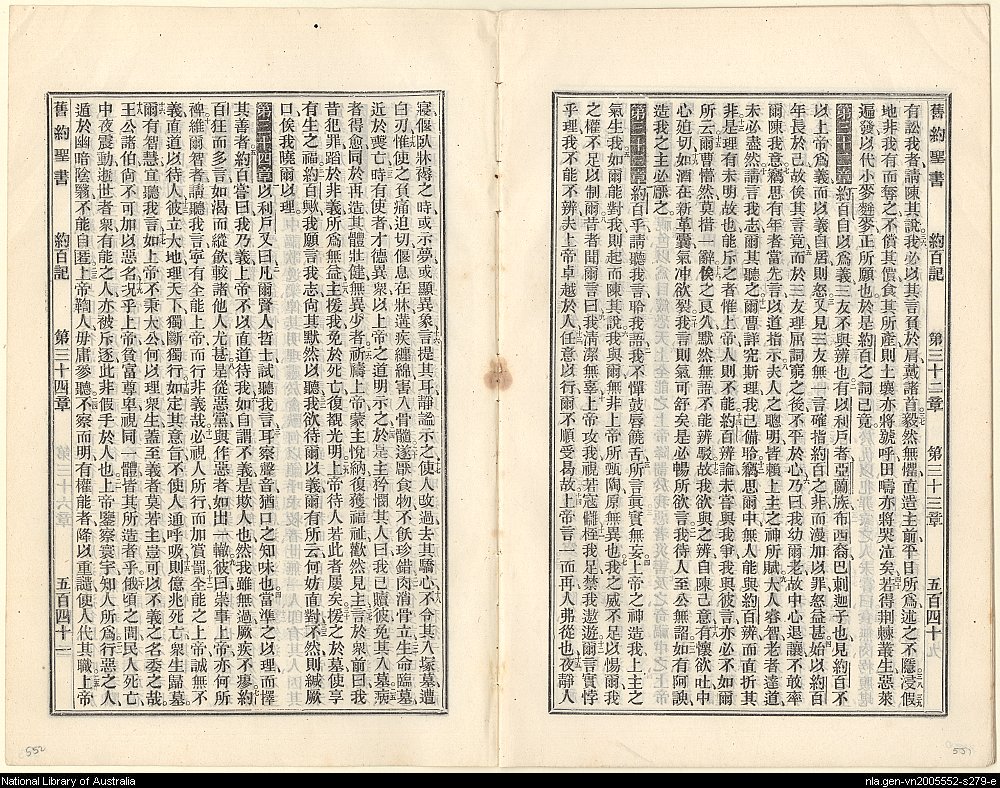 舊約聖書
約百記
第三十二章
第三十三章
五百四十九
有訟我者請陳其說我必以其言負於肩戴諸首毅然無懼直造主前平日所爲述之不隱浸假
地非我有而奪之不償其償食其所產則土壤亦將號呼田疇亦將哭泣矣若得荆棘叢生惡萊
遍發以代小麥麰麥正所願也於是約百之詞已竟
第三十二章約百自以爲義三友不與辨也有以利戶者亞蘭族布西裔巴剌迦子也見約百不
以上帝爲義而以義自居則怒又見三友無一言確指約百之非而漫加以罪怒益甚始以約百
年長於己故俟其言竟而於三友理屈詞窮之後不平於心乃曰我幼爾老故中心退讓不敢率
爾陳我意竊思有年者當先言以道指示夫人之聰明皆賴上主之神所賦大人睿智老者達道
未必盡然請言我志爾其聽之爾曹詳究斯理我已備聆竊思爾中無人能與約百辨而直折其
非是理有未明故也能斥之者惟上帝人則不能約百辨論未嘗與我爭我與彼言亦必不如爾
所云爾曹懵然莫措一辭俟之良久默然無語不能辨駁故我欲與之辨自陳己意有懷欲吐中
心迫切如酒在新革囊氣冲欲裂我言則氣可舒矣是必暢所欲言我待人至公無諂如有阿諛
造我之主必殛之
第三十三章約百乎請聽我言聆我語我不憚鼓唇饒舌所言眞實無妄上帝之神造我上主之
氣生我如爾能對我則起而陳其說我與爾無非上帝所甄陶原無異也我之威不足以惕爾我
之權不足以制爾昔者間爾言曰我清潔無辜上帝攻我視若寇讎桎我足禁我遨遊爾言實悖
乎理我不能不辨夫上帝卓越於人任意以行爾不順受曷故上帝言一而再人弗從也夜靜人
寢偃臥牀褥之時或示夢或顯異象言提其耳靜謐示之使人攺過去其驕心不令其入塚墓遭
白刃惟使之負痛迫切偃息在牀遘疾纏綿害入骨髓遂厭食物不飫珍錯肉消骨立生命臨墓
近於喪亡時有使者才德異衆以上帝之道明示之於是主矜憫其人曰我已贖彼免其入墓病
者得愈同於再造其體壯健無異少者祈禱上帝蒙主悅納復獲福祉歡然見主言於衆前曰我
昔犯罪蹈於非義所爲無益主援我免於死亡復觀光明上帝待人若此者屢矣援之於墓使享
有生之福約百歟我願言我志尚其默然以聽我欲待爾以義爾有所云何妨直對不然則緘厥
口俟我曉爾以理
第三十四章以利戶又曰凡爾賢人哲士試聽我言耳察聲音猶口之知味也當準之以理而擇
其善者約百嘗曰我乃義上帝不以直道待我如自謂不義是欺人也然我雖無過厥疾不瘳約
百狂而多言如渴而縱飲較諸他人尤甚是從惡黨與作惡者如出一轍彼曰崇事上帝亦何所
裨維爾智者請聽我言寧有全能上帝而行非義哉必視人所行而加賞罰全能之上帝誠無不
義直道以待人彼立大地理天下獨斷獨行如定其意旨不使人通呼吸則億兆死亡衆生歸墓
爾有智慧宜聽我言如上帝不秉大公何以理衆生蓋至義者莫若主豈可以不義之名委之哉
王公諸伯尙不可加以惡名况乎上帝貧富尊卑視同一體皆其所造者乎俄頃之間民人死亡
中夜震動逝世者衆有能之人亦被斥逐此非假手於人也上帝鑒察寰宇知人所爲行惡之人
遁於幽暗陰翳不能自匿上帝鞫人毋庸參聽不察而明有權能者降以重譴使人代其職上帝
舊約聖書
約百記
第三十四章
五百四十
552
551
National Library of Australia
nla.gen-vn2005552-s279-e